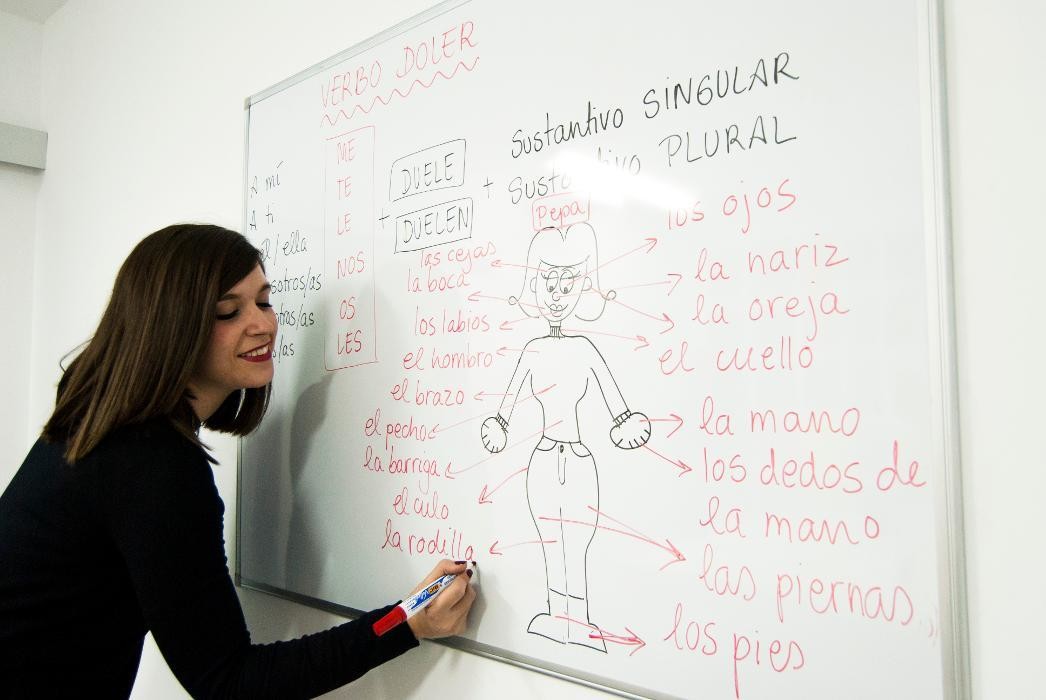 VERBO DOLER
A mí
A ti
el/ella
sotros/as
tras/as
s/as
ME
TE
LE
NOS
OS
LES
+
DUELE
DUELEN
+
Sustantivo SINGULAR
PLURAL
Pepa
las cejas
la boca
los labios
el hombro
el brazo
el pecho
la barriga
el culo
la rodilla
los ojos
la nariz
la oreja
el cuello
la mano
los dedos de
la mano
las piernas
los pies